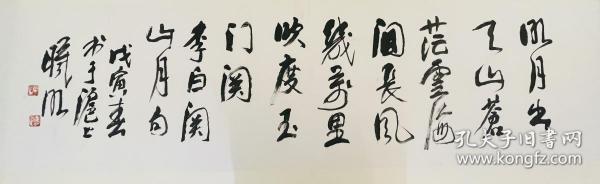 明月出
天山蒼
茫雲海
间長风
幾萬里
吹度玉
门関
李白関
山月句
戊寅春
书于滬上
曦明
孔夫子旧书网
www.kongfz.com